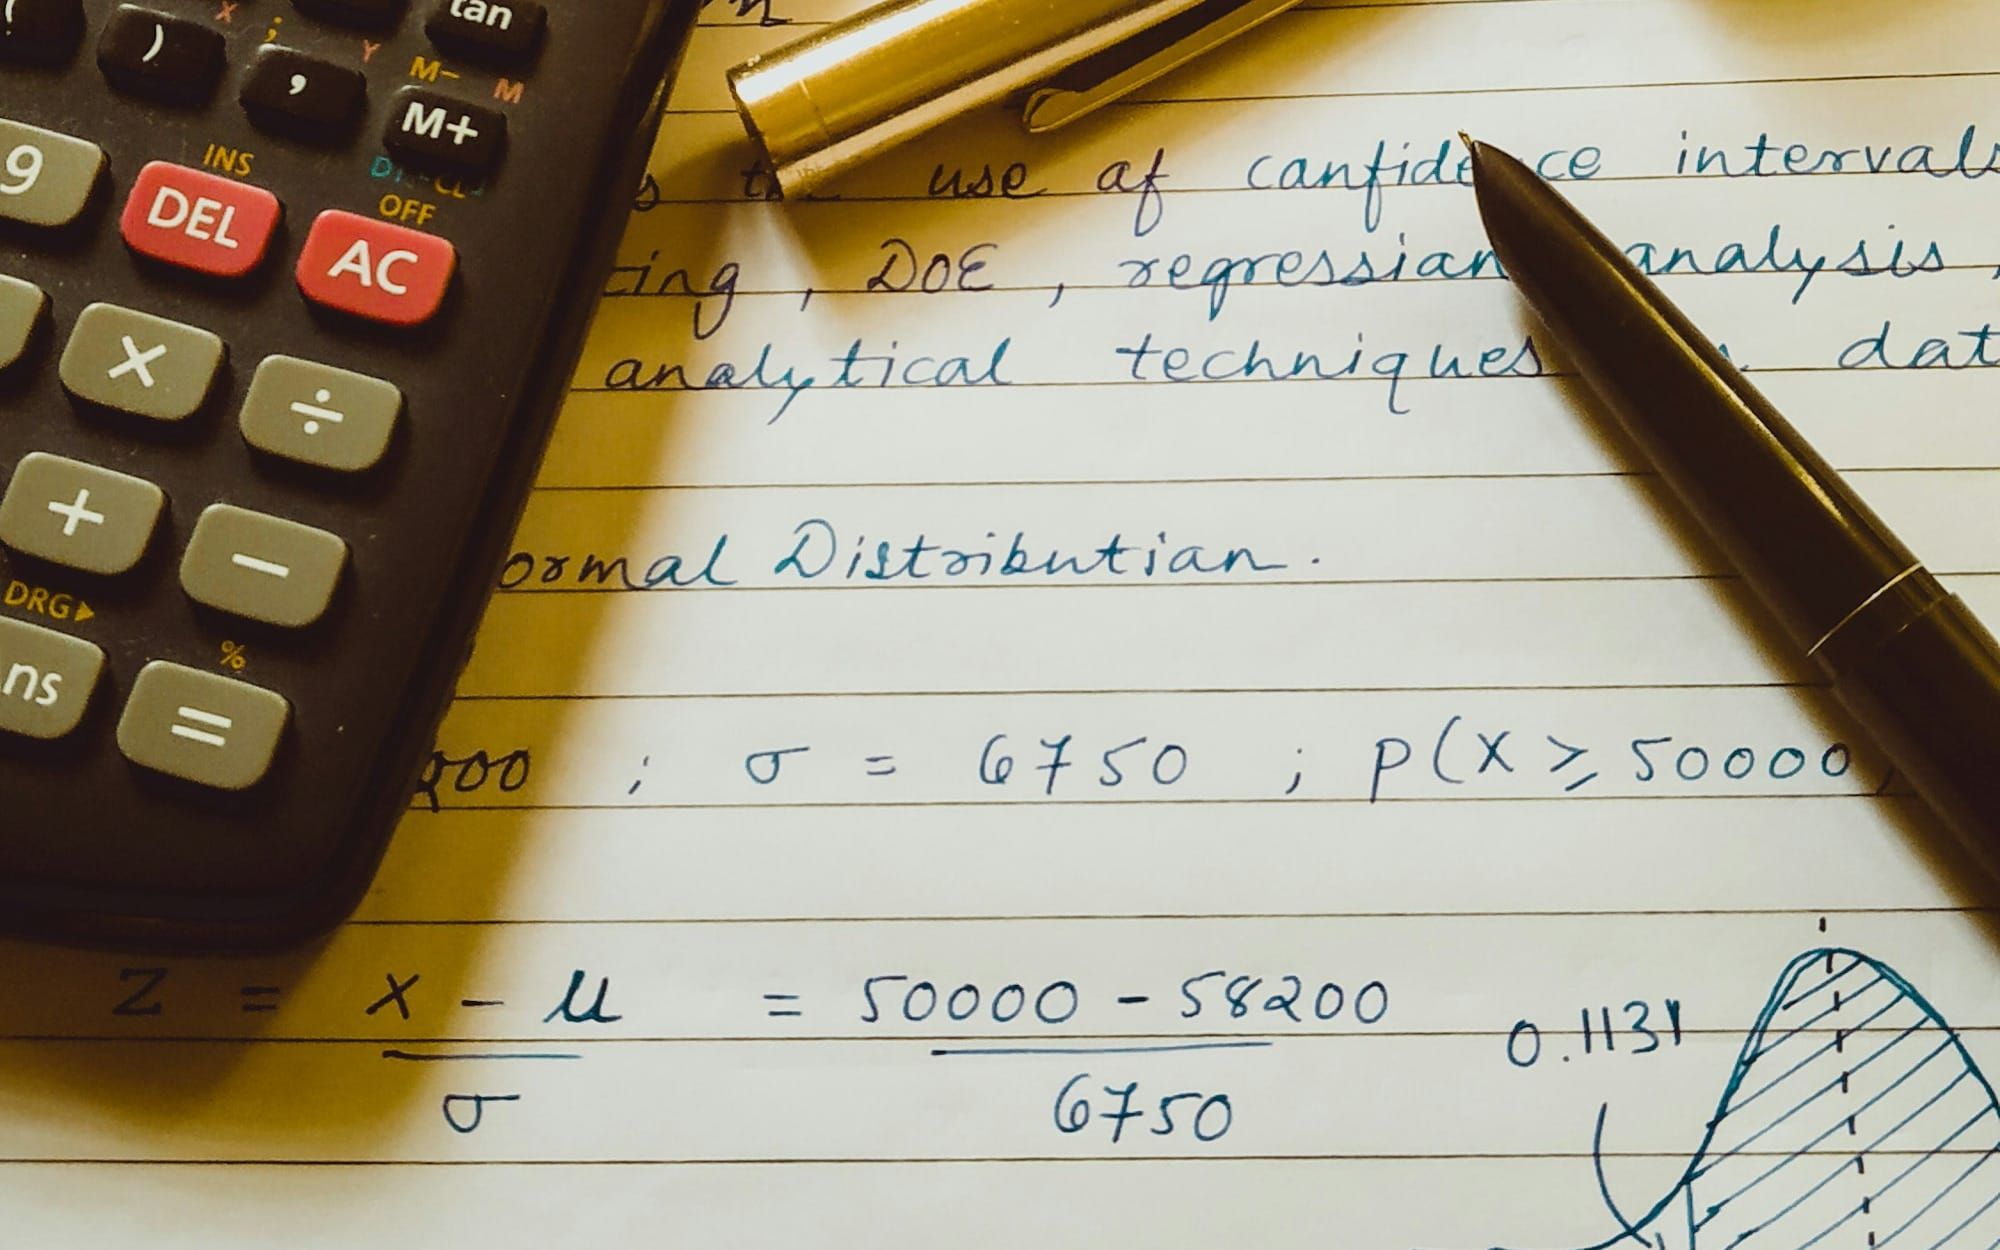 tan
)
,
X
;
Y
M-
M
M+
9
INS
DEL
OFF
AC
×
÷
+
−
DRG▶
%
=
use of confidence intervals
, DOE, regression analysis,
analytical techniques
Normal Distribution.
; σ = 6750 ; P(X ≥ 50000
Z = x - μ = 50000 - 58200
σ 6750
0.1131